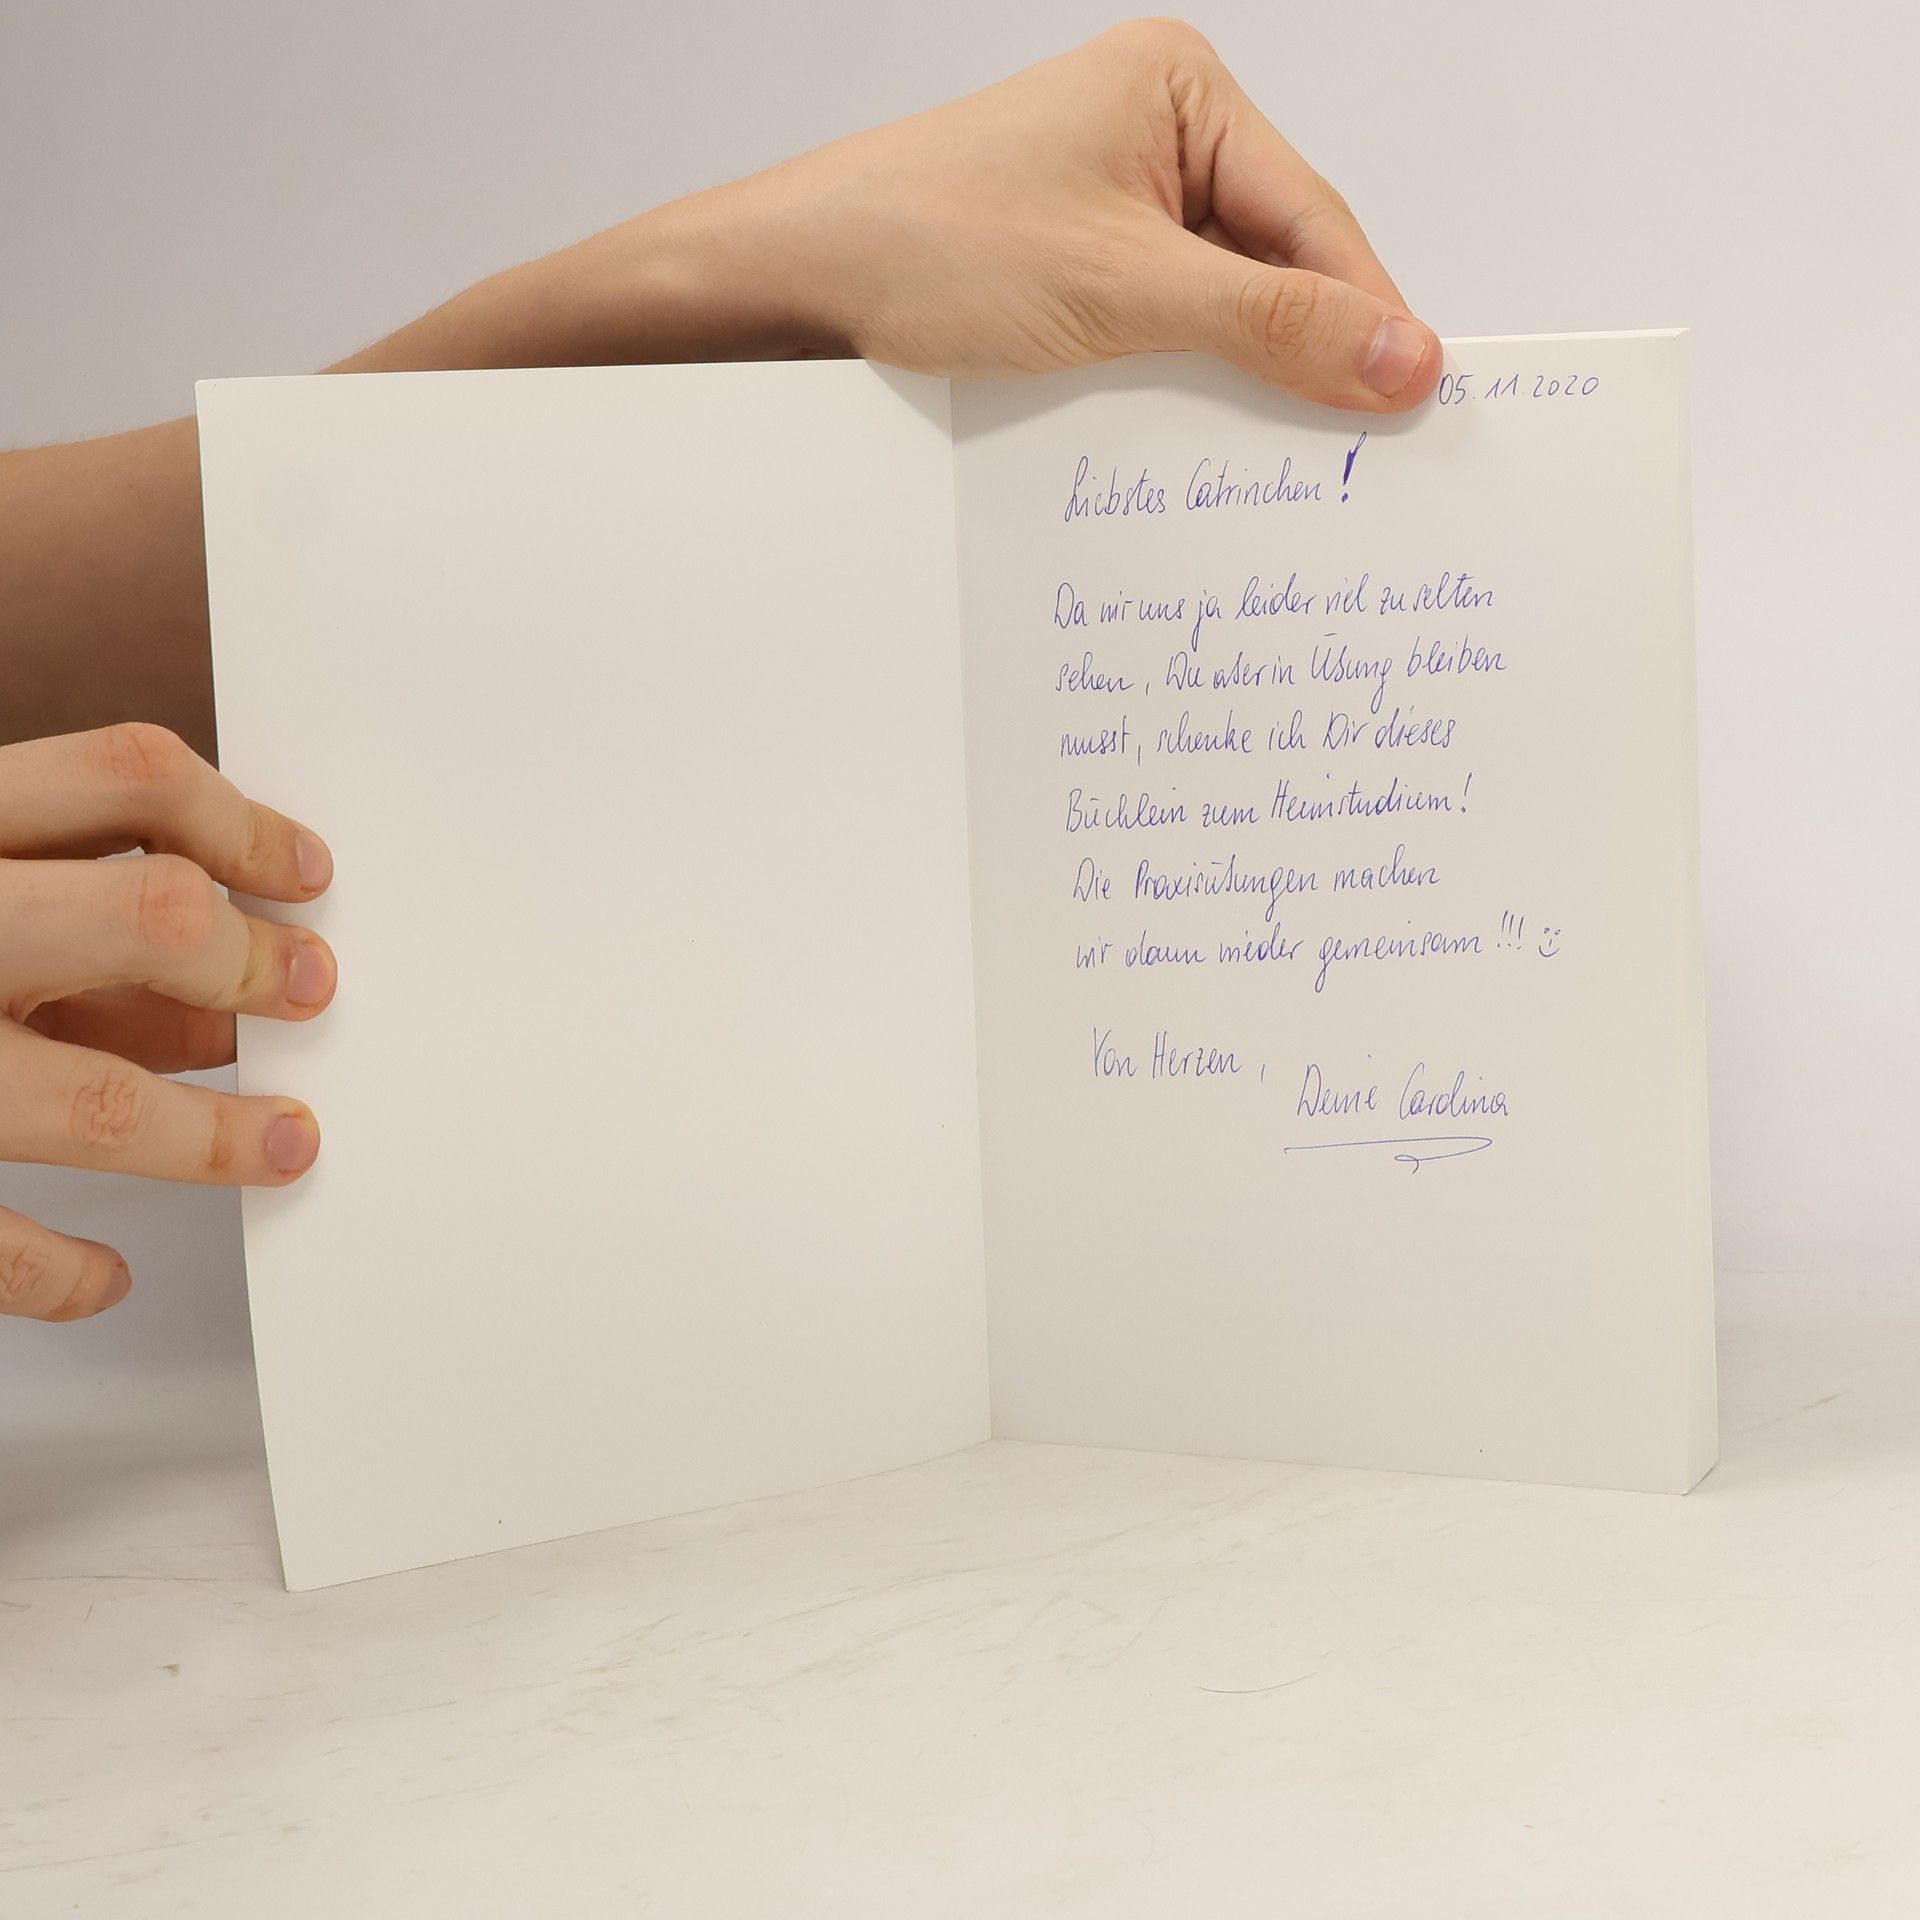 05.11.2020
Liebstes Catrinchen!
Da wir uns ja leider viel zu selten
sehen, Du aber in Übung bleiben
musst, schenke ich Dir dieses
Büchlein zum Heimstudium!
Die Praxisübungen machen
wir dann wieder gemeinsam!!! :)
Von Herzen,
Deine Carolina